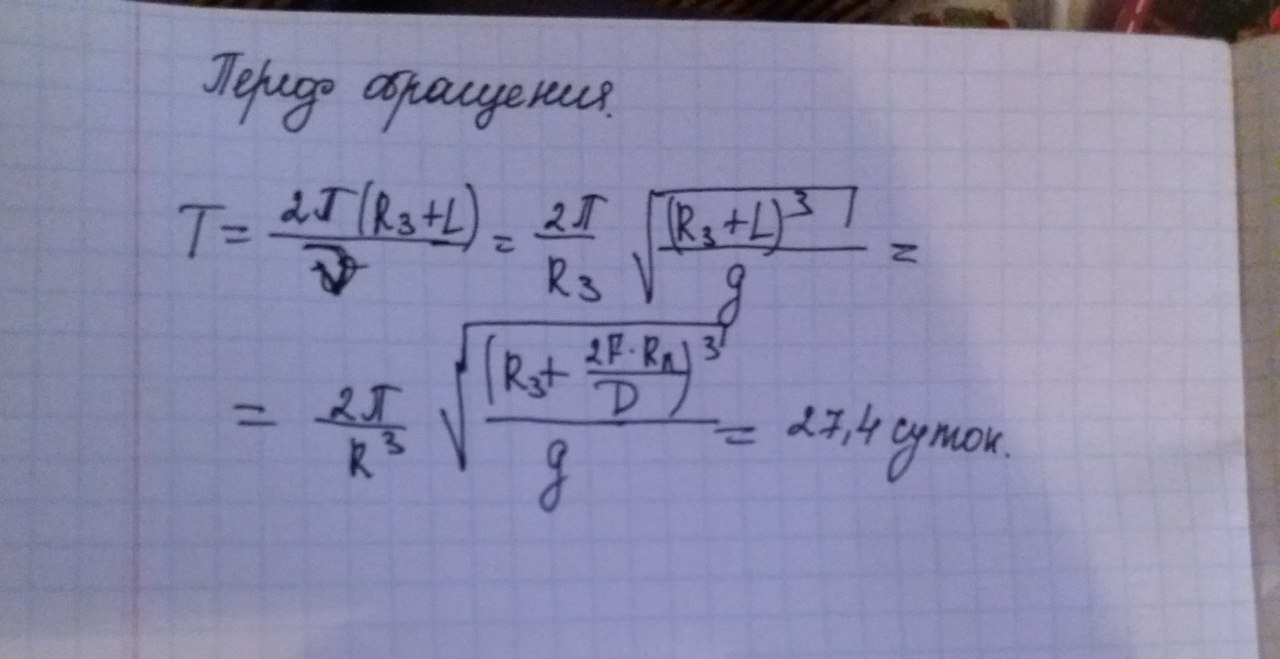 Период обращения.
T = 2π(R₃+L) / v = 2π / R₃ √((R₃+L)³ / g) =
= 2π / R³ √((R₃ + 2F·Rл / D)³ / g) = 27,4 суток.